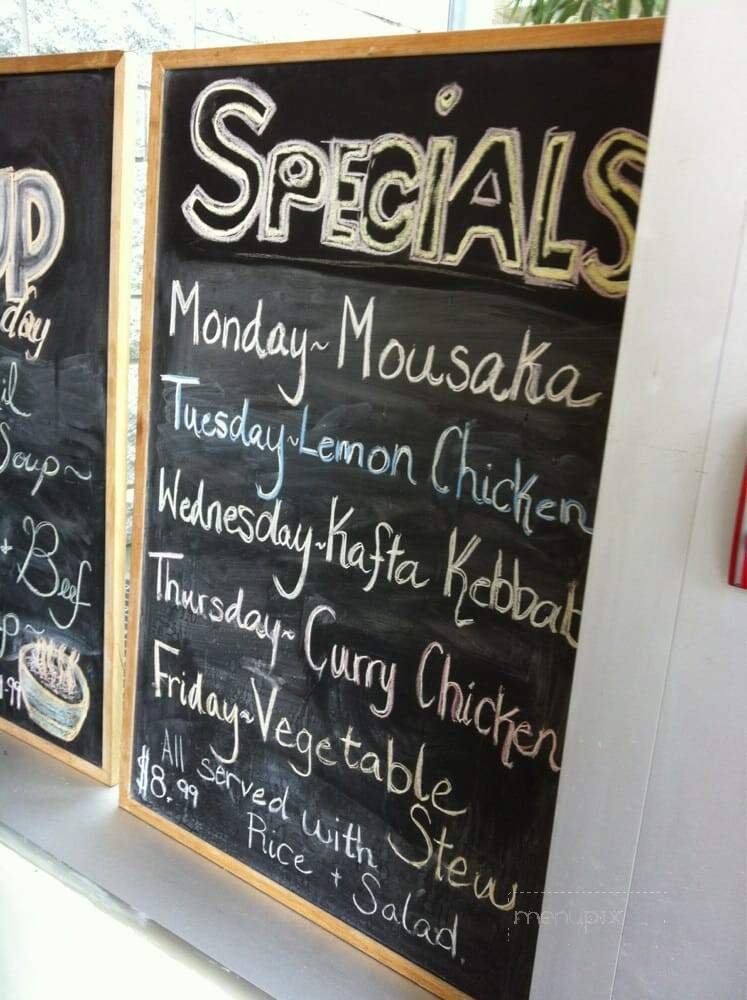 SPECIALS
Monday~Mousaka
Tuesday~Lemon Chicken
Wednesday~Kafta Kebbab
Thursday~Curry Chicken
Friday~Vegetable
Stew
All served with
$8.99 Rice + Salad.
UP
day
il
Soup~
+ Beef
p~
.99
menupix